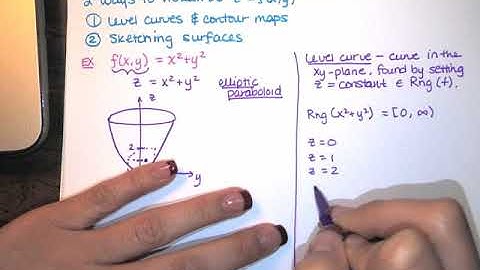 2 ways to
① Level curves & contour maps
② Sketching surfaces
EX f(x,y) = x²+y²
z = x²+y²
elliptic
paraboloid
z
2
y
Level curve – curve in the
xy-plane, found by setting
z = constant ∈ Rng(f).
Rng(x²+y²) = [0, ∞)
z = 0
z = 1
z = 2